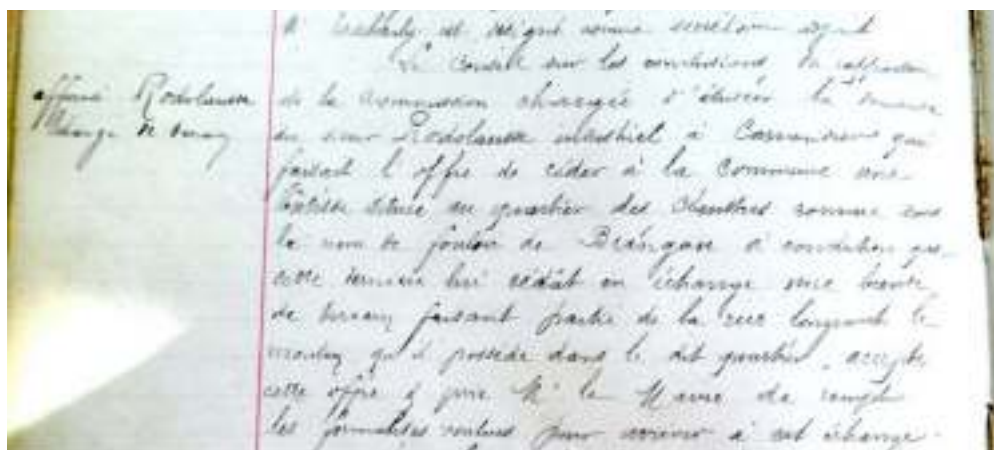 M. est désigné comme secrétaire
Le Conseil sur les conclusions du
affaire Rodolausse de la Commission chargée d'étudier la demande
échange de terrain du sieur Rodolausse industriel à qui
faisait l'offre de céder à la Commune une
bâtisse située au quartier des connue sous
le nom de foulon de Brangon à condition que
cette dernière lui cédât en échange une bande
de terrain faisant partie de la rue longeant le
moulin qu'il possède dans le dit quartier, accepte
cette offre & prie M. le Maire de remplir
les formalités voulues pour arriver à cet échange.